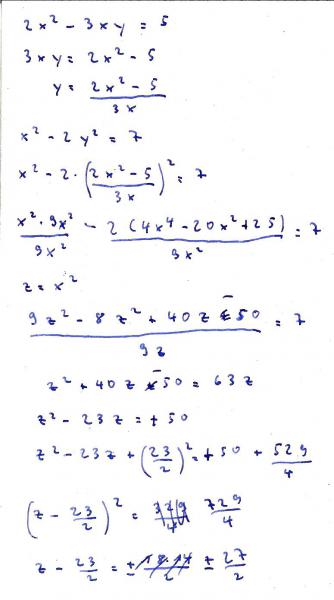 2x² - 3xy = 5
3xy = 2x² - 5
y = (2x² - 5)/(3x)
x² - 2y² = 7
x² - 2 · ((2x² - 5)/(3x))² = 7
(x² · 9x²)/(9x²) - (2(4x⁴ - 20x² + 25))/(9x²) = 7
z = x²
(9z² - 8z² + 40z - 50)/(9z) = 7
z² + 40z - 50 = 63z
z² - 23z = +50
z² - 23z + (23/2)² = +50 + 529/4
(z - 23/2)² = 729/4
z - 23/2 = ± 27/2